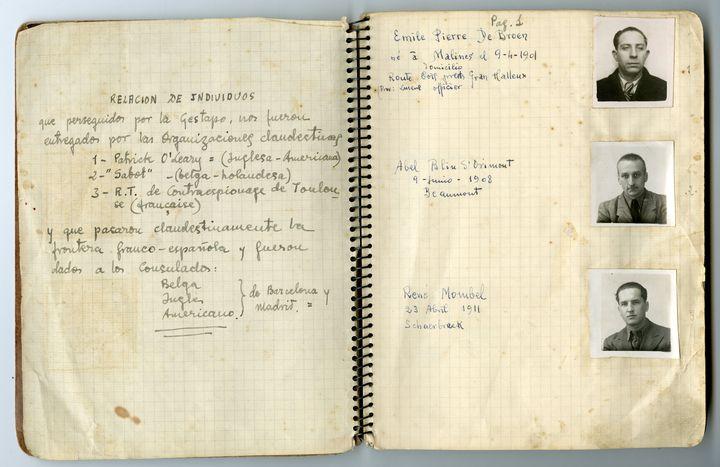 RELACION DE INDIVIDUOS
que perseguidos por la Gestapo, nos fueron
entregados por las Organizaciones clandestinas
1 - Patrick O'Leary = (Inglesa-Americana)
2 - "Sabot" - (belga-holandesa)
3 - R.T. de Contraespionage de Toulou
se (française)
y que pasaron clandestinamente la
frontera franco-española y fueron
dados a los Consulados:
Belga
Ingles
Americano.
de Barcelona y
Madrid. =
Pag. 1
Emile Pierre De Broen
né à Malines el 9-4-1901
Domicilio
Route
officier
1
Abel
9 - Junio - 1908
Beaumont
2
René Mombel
23 Abril 1911
Schaerbeek